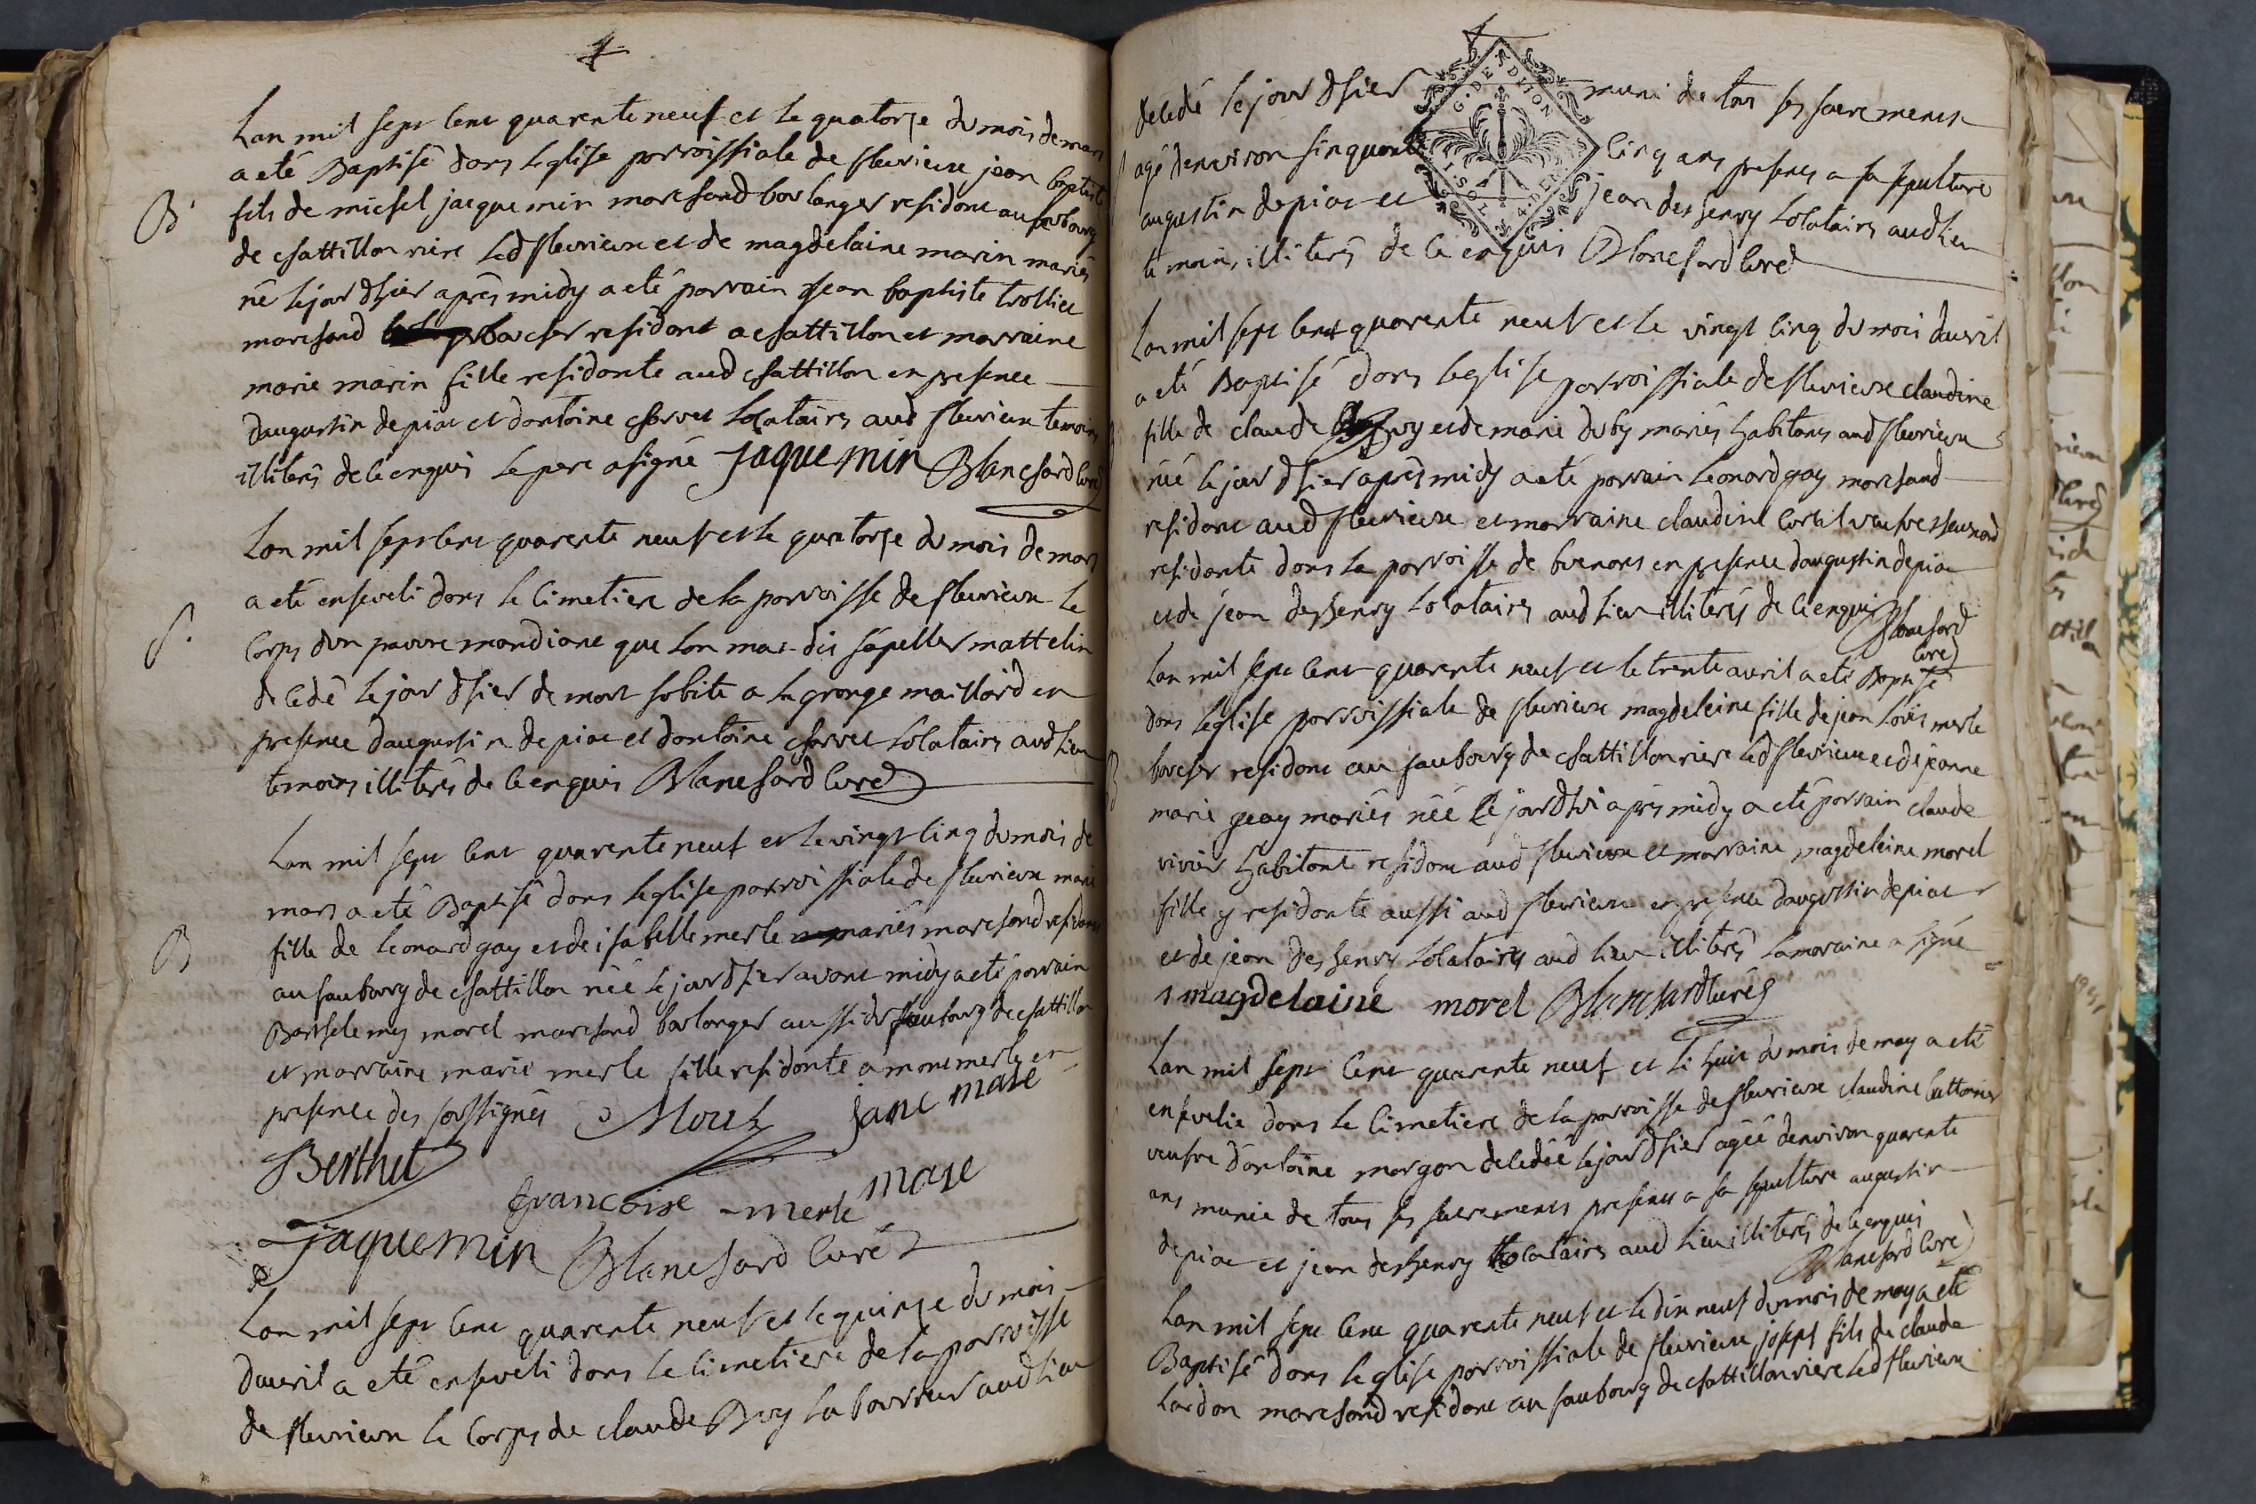 Lan mil sept cent quarente neuf et le quatorze du mois de mars
a eté Baptisé dans leglise parroissiale de fleurieux jean baptiste
B
fils de michel jacquemin marchand boulanger residant au faubourg
de chattillon riere led fleurieux et de magdelaine marin mariés
né le jour dhier aprês midy a eté parrain jean baptiste trollier
marchand boucher residant a chattillon et marraine
marie marin fille residante aud chattillon en presence
daugustin depiat et dantoine charvet locatairs aud fleurieux temoins
illiterés de ce enquis le pere a signé jaquemin Blanchard curé
Lan mil sept cent quarente neuf et le quatorze du mois de mars
a eté enseveli dans le cimetiere de la parroisse de fleurieux le
S.
corps dun pauvre mandiant que lon mat dit sapeller mattelin
decedé le jour dhier de mort subite a la grange maillard en
presence daugustin depiat et dantoine charvet locatairs aud lieu
temoins illiterés de ce enquis Blanchard curé
Lan mil sept cent quarente neuf et le vingt cinq du mois de
mars a eté Baptisé dans leglise parroissiale de fleurieux marie
B
fille de leonard gay et de isabelle merle mariés marchand residant
au faubourg de chattillon née le jour dhier avant midy a eté parrain
Barthelemy morel marchand boulanger aussi du faubourg de chattillon
et marraine marie merle fille residante a montmerle en
presence des soussignés Morel jane mase
Berthet
francoise merle mase
jaquemin Blanchard curé
Lan mil sept cent quarente neuf et le quinze du mois
davril a eté enseveli dans le cimetiere de la parroisse
de fleurieux le corps de claude Buy laboureur aud lieu
decedé le jour dhier muni de tous ses sacrements
G. DE DIION
agé denviron sinquante cinq ans presents a sa sepulture
augustin depiat et jean deshenry locatairs aud lieu
temoins illiterés de ce enquis Blanchard curé
Lan mil sept cent quarente neuf et le vingt cinq du mois davril
a eté Baptisé dans leglise parroissiale de fleurieux claudine
fille de claude et de marie duby mariés habitants aud fleurieux
née le jour dhier aprês midy a eté parrain leonard gay marchand
residant aud fleurieux et marraine claudine veufve
residante dans la parroisse de buenans en presence daugustin depiat
et de jean deshenry locatairs aud lieu illiterés de ce enquis Blanchard
curé
Lan mil sept cent quarente neuf et le trente avril a eté Baptisé
dans leglise parroissiale de fleurieux magdeleine fille de jean louis merle
B
boucher residant au faubourg de chattillon riere led fleurieux et de jeanne
marie geay mariés née le jourdhui après midy a eté parrain claude
vivier habitant residant aud fleurieux et marraine magdeleine morel
fille y residante aussi aud fleurieux en presence daugustin depiat
et de jean deshenry locatairs aud lieu illiterés la maraine a signé
magdelaine morel Blanchard curé
Lan mil sept cent quarente neuf et le huit du mois de may a eté
ensevelie dans le cimetiere de la parroisse de fleurieux claudine
veufve dantoine margon decedée le jour dhier agée denviron quarente
ans munie de tous ses sacrements presents a sa sepulture augustin
depiat et jean deshenry locatairs aud lieu illiterés de ce enquis
Blanchard curé
Lan mil sept cent quarente neuf et le dix neuf du mois de may a eté
Baptisé dans leglise parroissiale de fleurieux joseph fils de claude
lardon marchand residant au faubourg de chattillon riere led fleurieux